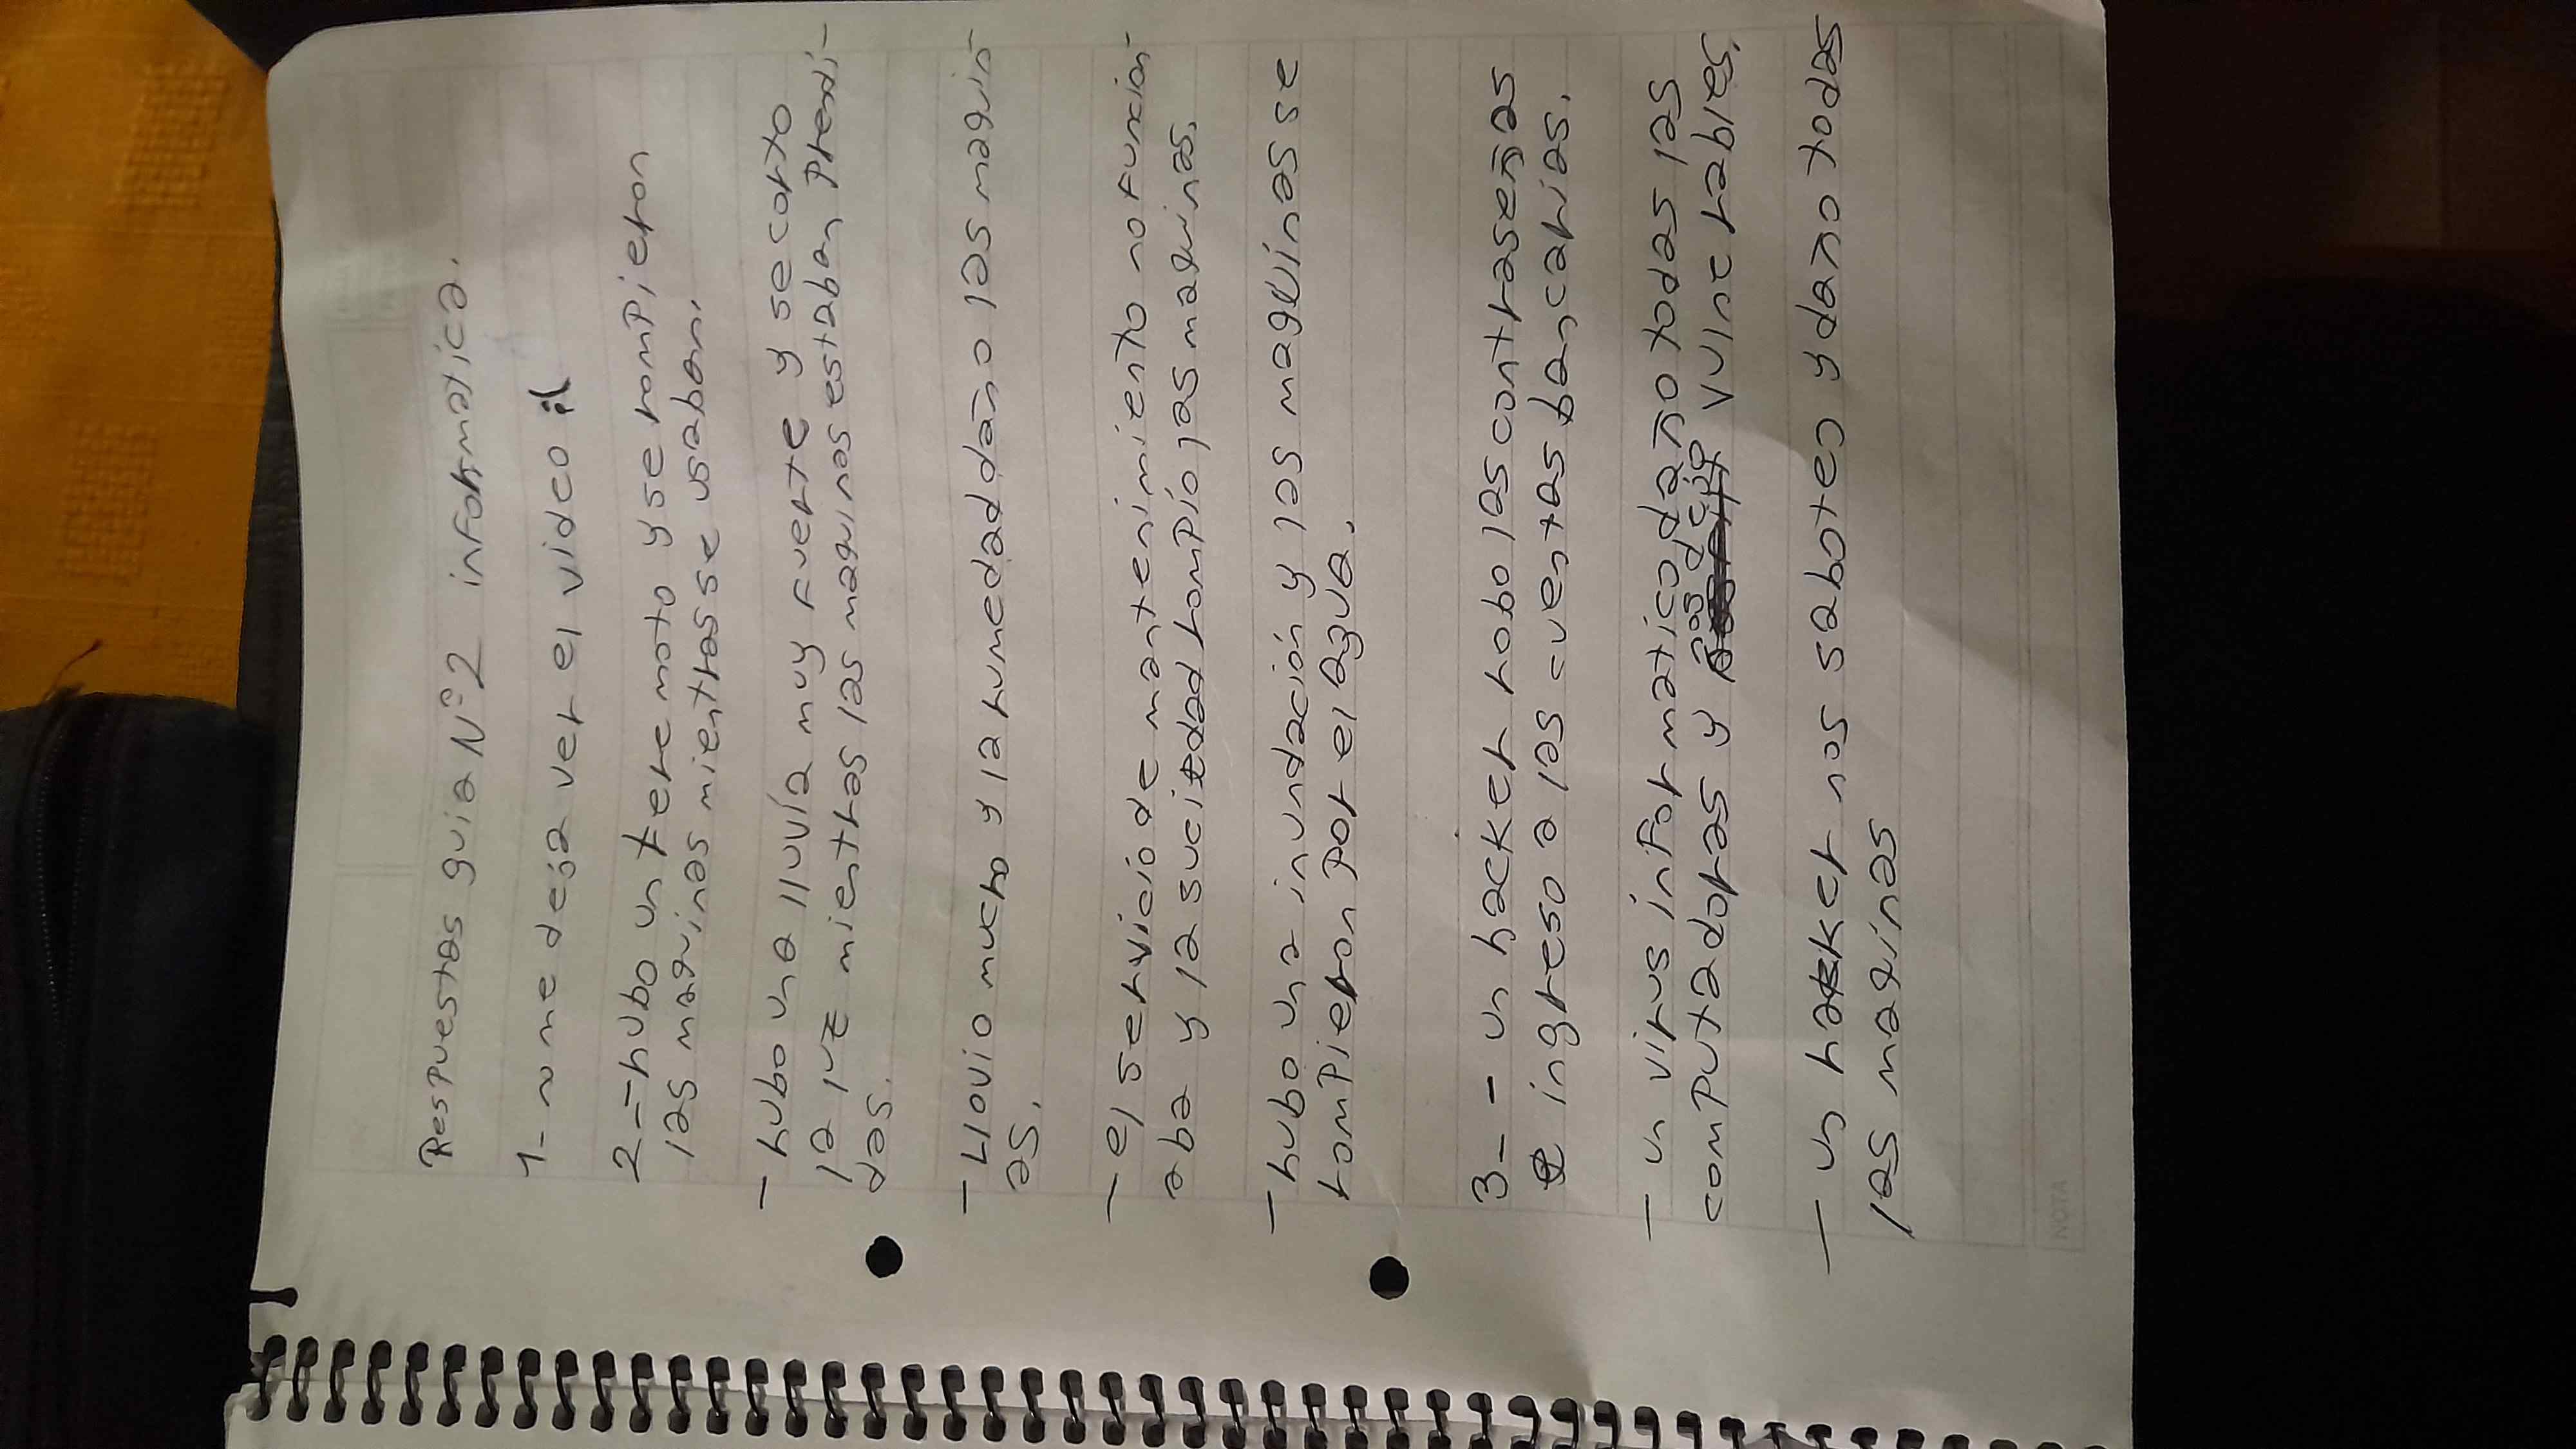 Respuestas guia N°2 informatica.
1- no me deja ver el video :(
2-- hubo un terremoto y se rompieron
las maquinas mientras se usaban.
- hubo una lluvia muy fuerte y se corto
la luz mientras las maquinas estaban prendi-
das.
- Llovio mucho y la humedad daño las maquin-
as.
- el servicio de mantenimiento no funcion-
aba y la suciedad rompio las maquinas.
- hubo una inundación y las maquinas se
rompieron por el agua.
3-- un hacker robo las contraseñas
e ingreso a las cuentas bancarias.
- un virus informatico daño todas las
computadoras y vulnerables.
- un hacker nos saboteo y daño todas
las maquinas
NOTA